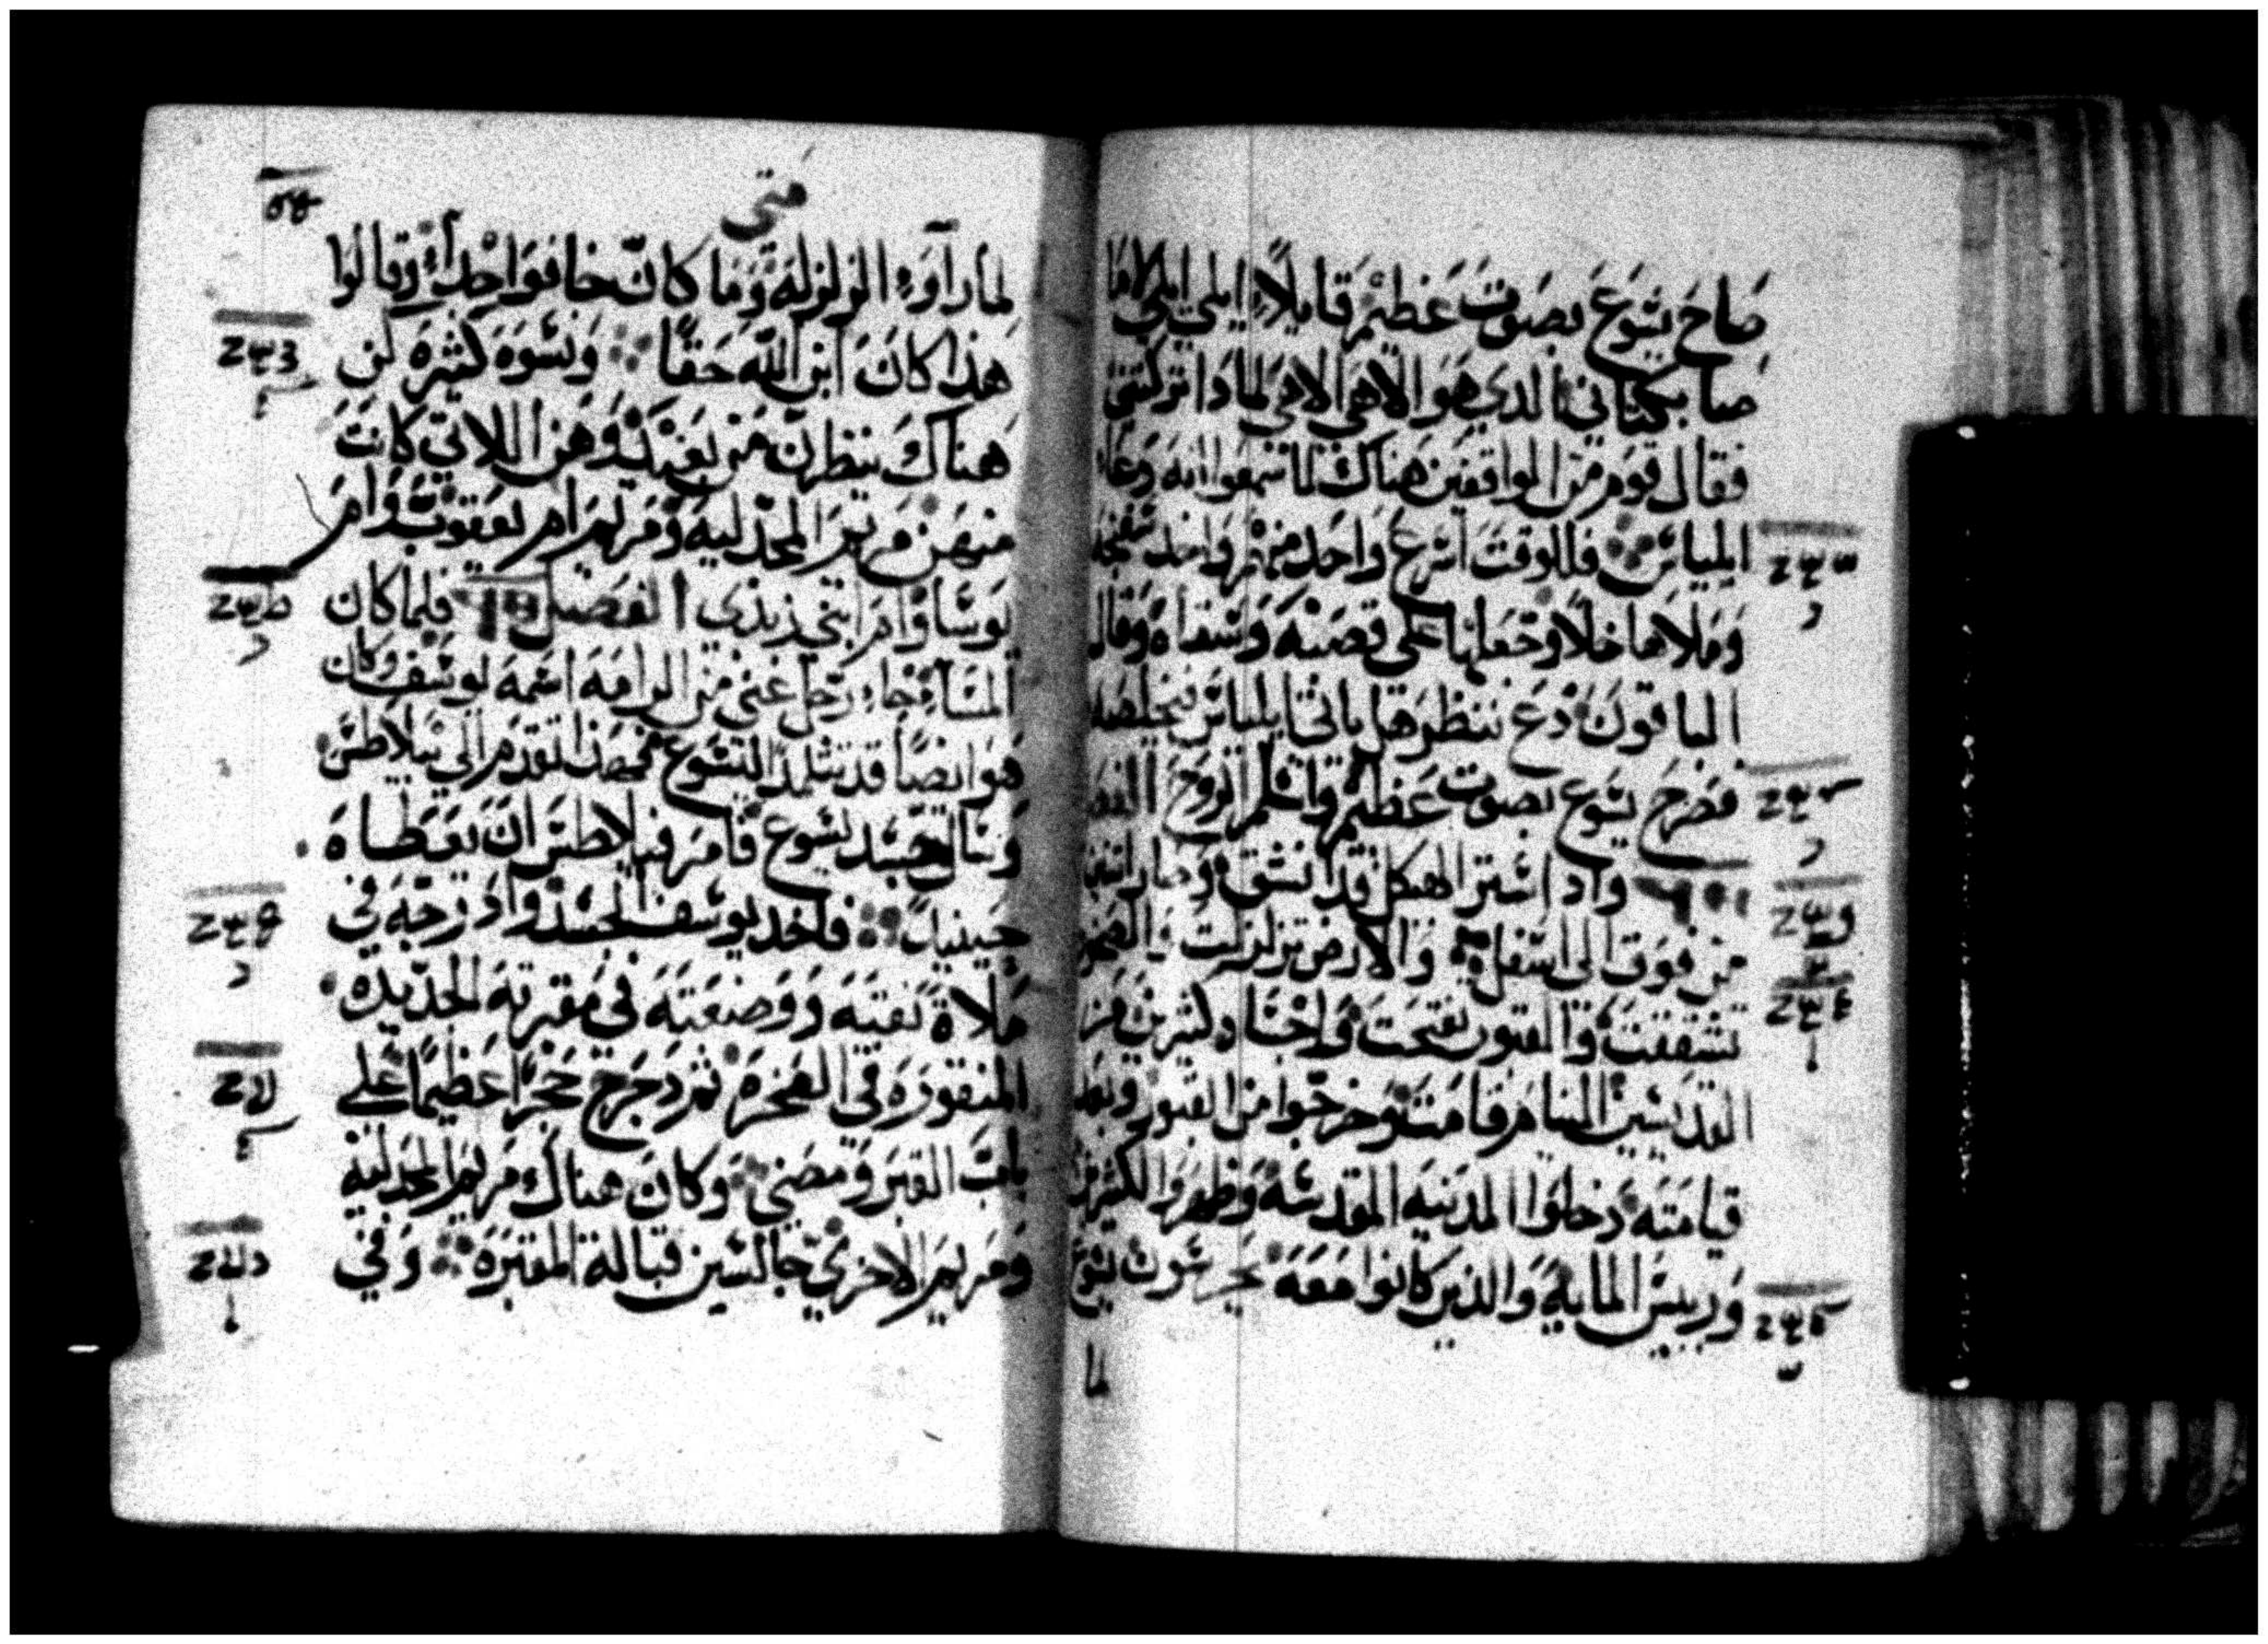 صاح يسوع بصوت عظيم قايلاً ايلي ايلي لاما
صابكتاني الدي هو الاهي الاهي لمادا تركتني
فقال قوم من الواقفين هناك لما سمعوا انه دعا
ايلياس فللوقت اسرع واحد منهم واخد سفنجه
وملاها خلاً وجعلها على قصبه وسقاه وقال
الباقون دع ننظر هل ياتي ايلياس يخلصه
فصرخ يسوع بصوت عظيم واسلم الروح الفصل
واد استر الهيكل قد انشق وصار اثنين
من فوق الى اسفل والارض تزلزلت والصخور
تشققت والقبور تفتحت واجساد كثيرين من
القديسين النيام قامت وخرجوا من القبور وبعد
قيامته دخلوا المدينه المقدسه وظهروا لكثيرين
وربيس المايه والذين كانوا معه يحرسون يسوع
لما
متى
لما راوا الزلزله وما كان خافوا جداً وقالوا
هذا كان ابن الله حقاً ونسوه كثيره كن
هناك ينظرن من بعيد وهن اللاتي كانت
منهن مريم المجدليه ومريم ام يعقوب وام
يوسا وام ابني زبدي الفصل فلما كان
المسا جاء رجل غني من الرامه اسمه يوسف وكان
هو ايضاً قد تتلمذ ليسوع فهذا تقدم الى بيلاطس
وسال جسد يسوع فامر فيلاطس ان يعطاه
حينيد فاخد يوسف الجسد وادرجه في
ملاة نقيه ووضعته في مقبرته الجديده
المنقوره في الصخره ثم دحرج حجراً عظيماً على
باب القبر ومضي وكان هناك مريم المجدليه
ومريم الاخري جالسين قبالة المقبره وفي